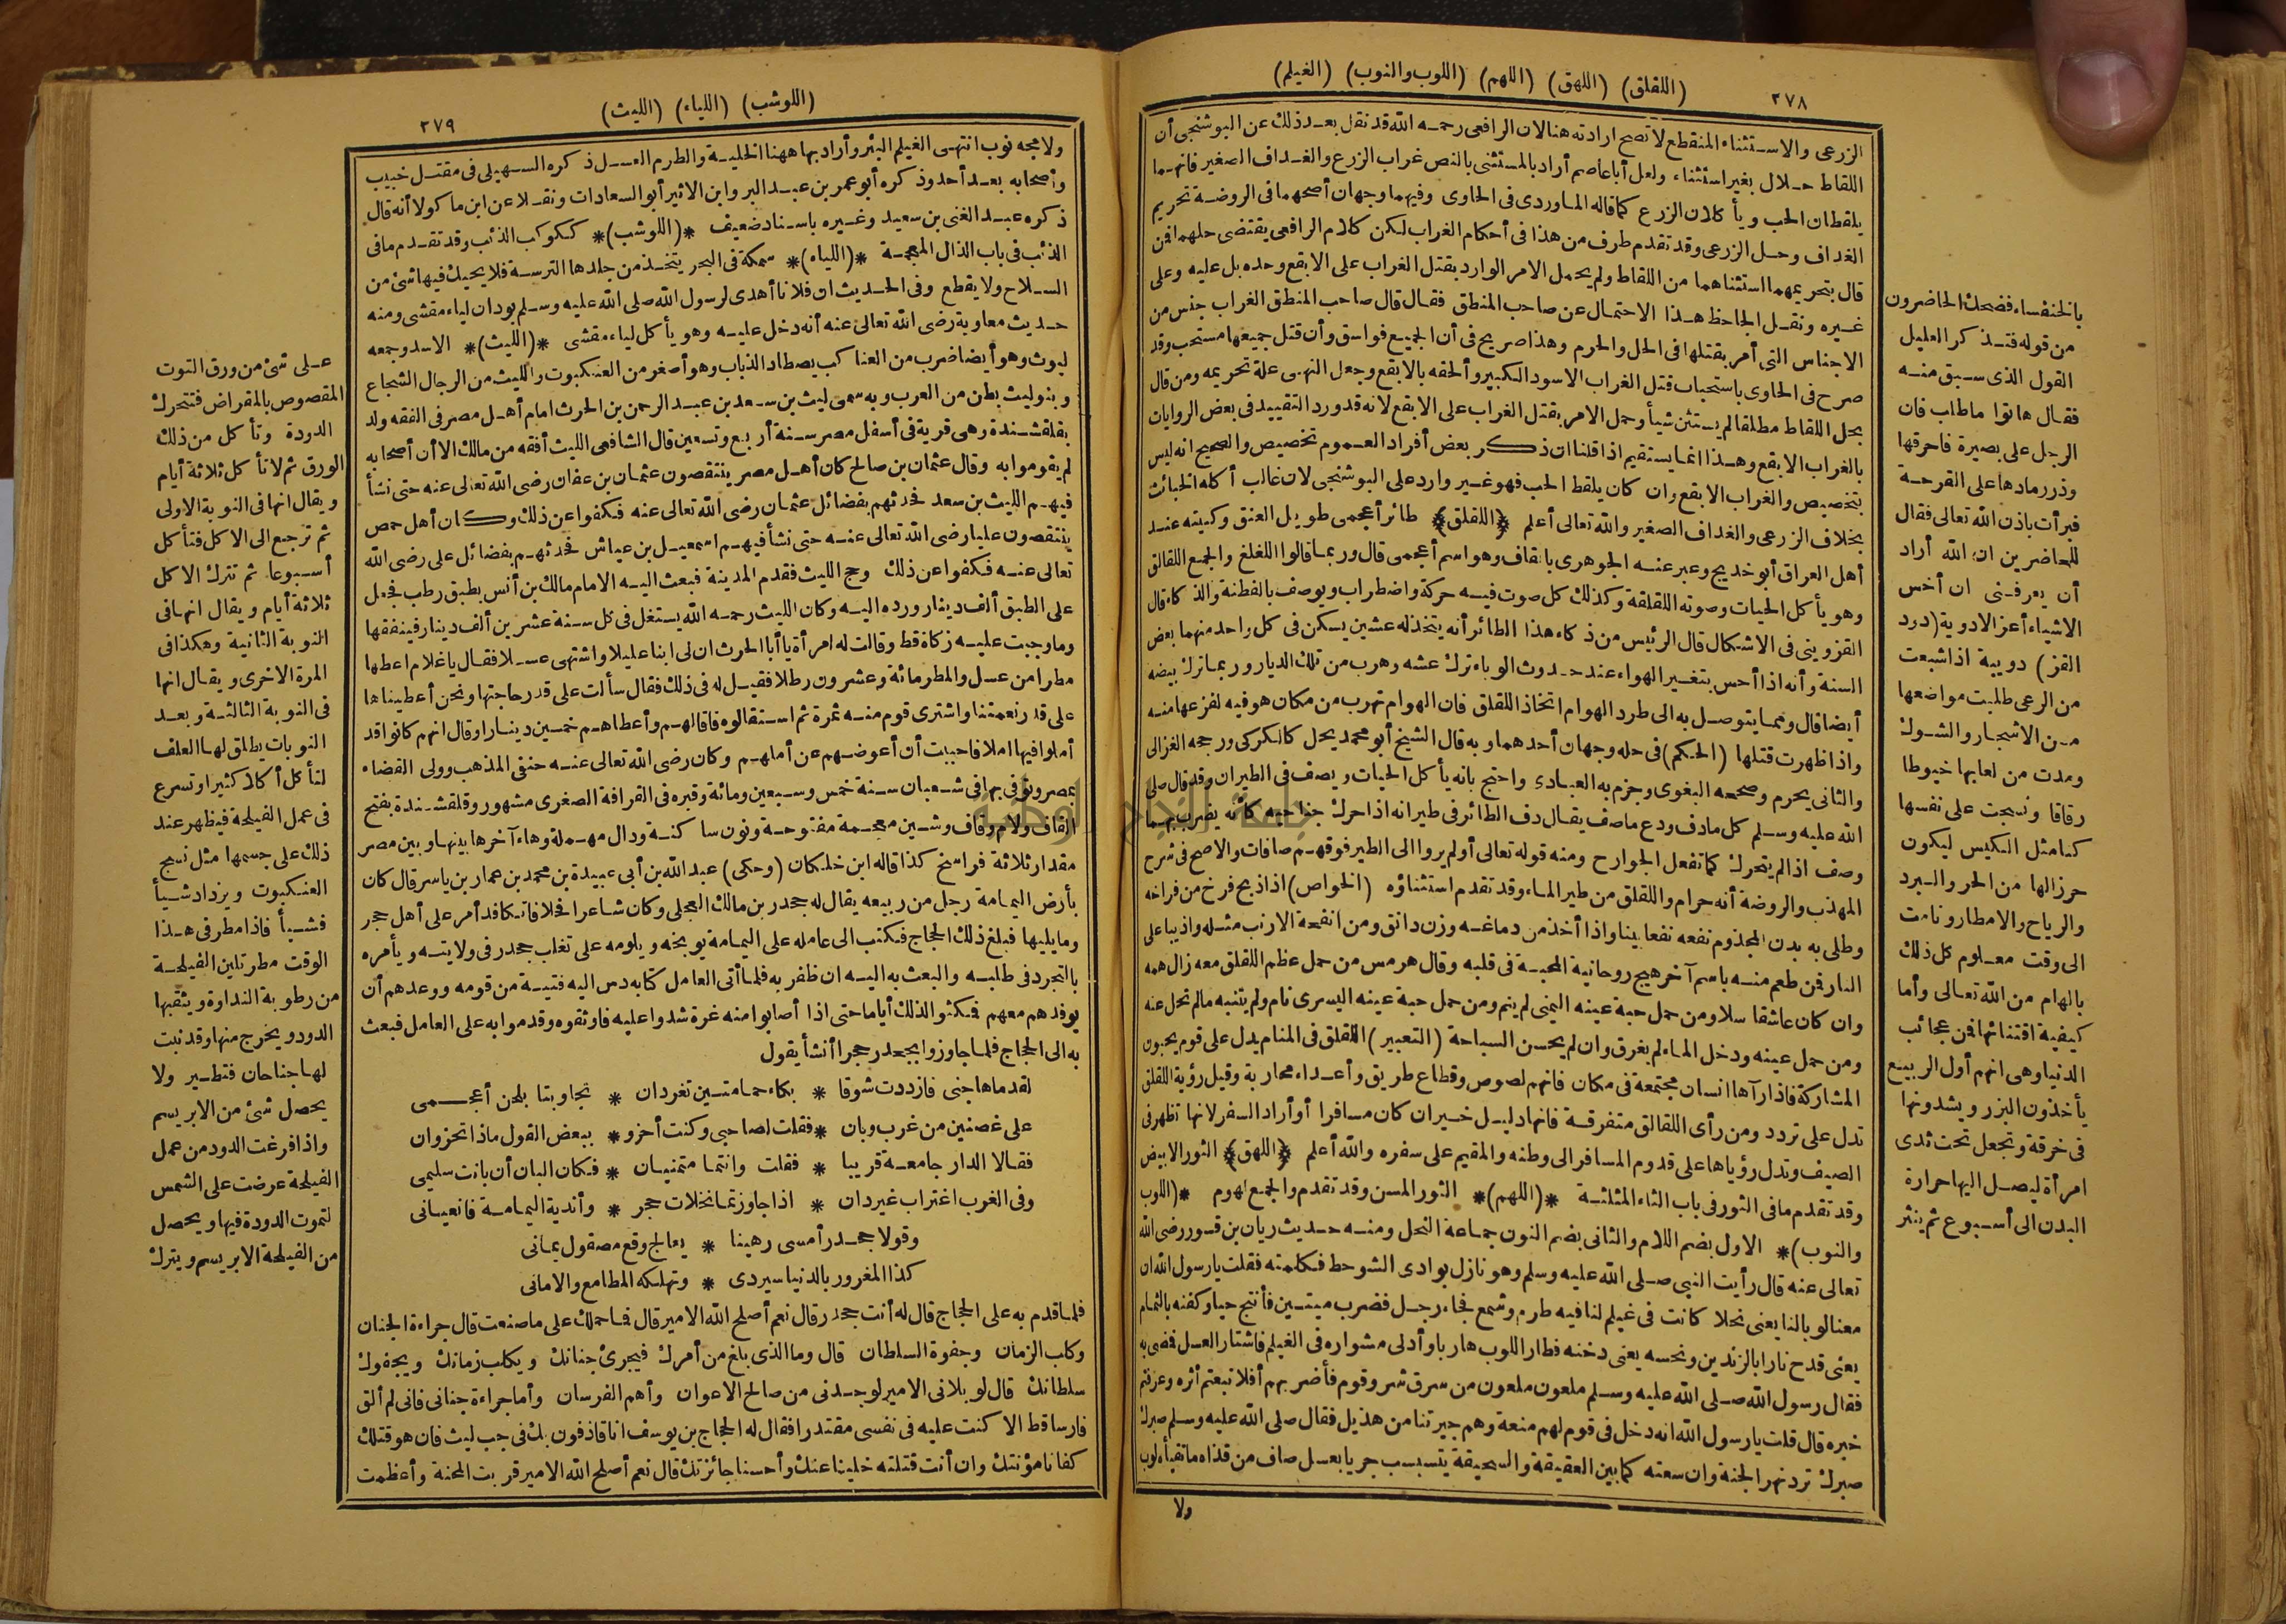 ٢٧٨
(اللقلق) (اللهق) (اللهم) (اللوب والنوب) (الغيلم)
الزرعى والاستثناء المنقطع لا تصح ارادته هنا لان الرافعى رحمه الله قد نقل بعد ذلك عن البوشنجى أن
اللقاط حلال بغير استثناء ولعل أبا عاصم أراد بالمستثنى بالنص غراب الزرع والغداف الصغير فانهما
يلقطان الحب ويأكلان الزرع كما قاله الماوردى فى الحاوى وفيهما وجهان أصحهما فى الروضة تحريم
الغداف وحل الزرعى وقد تقدم طرف من هذا فى أحكام الغراب لكن كلام الرافعى يقتضى حلهما فمن
قال بتحريمهما استثناهما من اللقاط ولم يحمل الامر الوارد بقتل الغراب على الابقع وحده بل عليه وعلى
غيره ونقل الجاحظ هذا الاحتمال عن صاحب المنطق فقال قال صاحب المنطق الغراب جنس من
الاجناس التى أمر بقتلها فى الحل والحرم وهذا صريح فى أن الجميع فواسق وأن قتل جميعها مستحب وقد
صرح فى الحاوى باستحباب قتل الغراب الاسود الكبير وألحقه بالابقع وجعل النهى علة تحريمه ومن قال
بحل اللقاط مطلقا لم يستثن شيأ وحمل الامر بقتل الغراب على الابقع لانه قد ورد التقييد فى بعض الروايات
بالغراب الابقع وهذا انما يستقيم اذا قلنا ان ذكر بعض أفراد العموم تخصيص والصحيح انه ليس
بتخصيص والغراب الابقع وان كان يلقط الحب فهو غير وارد على البوشنجى لان غالب أكله الخبائث
بخلاف الزرعى والغداف الصغير والله تعالى أعلم ﴿اللقلق﴾ طائر أعجمى طويل العنق وكنيته عند
أهل العراق أبو خديج وعبر عنه الجوهرى بالقاف وهو اسم أعجمى قال وربما قالوا اللغلغ والجمع اللقالق
وهو يأكل الحيات وصوته اللقلقة وكذلك كل صوت فيه حركة واضطراب ويوصف بالفطنة والذكاء قال
القزوينى فى الاشكال قال الرئيس من ذكاء هذا الطائر أنه يتخذ له عشين يسكن فى كل واحد منهما بعض
السنة وأنه اذا أحس بتغير الهواء عند حدوث الوباء ترك عشه وهرب من تلك الديار وربما ترك بيضه
أيضا قال ومما يتوصل به الى طرد الهوام اتخاذ اللقلق فان الهوام تهرب من مكان هو فيه لفزعها منه
واذا ظهرت قتلها (الحكم) فى حله وجهان أحدهما وبه قال الشيخ أبو محمد يحل كالكركى ورجحه الغزالى
والثانى يحرم وصححه البغوى وجزم به العبادى واحتج بانه يأكل الحيات ويصف فى الطيران وقد قال صلى
الله عليه وسلم كل ما دف ودع ما صف يقال دف الطائر فى طيرانه اذا حرك جناحيه كأنه يضرب بهما
وصف اذا لم يتحرك كما تفعل الجوارح ومنه قوله تعالى أولم يروا الى الطير فوقهم صافات والاصح فى شرح
المهذب والروضة أنه حرام واللقلق من طير الماء وقد تقدم استثناؤه (الخواص) اذا ذبح فرخ من فراخه
وطلى به بدن المجذوم نفعه نفعا بينا واذا أخذ من دماغه وزن دانق ومن انفحة الارنب مثله واذيبا على
النار فمن طعم منه باسم آخر هيج روحانية المحبة فى قلبه وقال هرمس من حمل عظم اللقلق معه زال همه
وان كان عاشقا سلا ومن حمل حبة عينه اليمنى لم ينم ومن حمل حبة عينه اليسرى نام ولم ينتبه مالم تحل عنه
ومن حمل عينه ودخل الماء لم يغرق وان لم يحسن السباحة (التعبير) اللقلق فى المنام يدل على قوم يحبون
المشاركة فاذا رآها انسان مجتمعة فى مكان فانهم لصوص وقطاع طريق وأعداء محاربة وقيل رؤية اللقلق
تدل على تردد ومن رأى اللقالق متفرقة فانها دليل خير ان كان مسافرا أو أراد السفر لانها تظهر فى
الصيف وتدل رؤياها على قدوم المسافر الى وطنه والمقيم على سفره والله أعلم ﴿اللهق﴾ الثور الابيض
وقد تقدم ما فى الثور فى باب الثاء المثلثة *(اللهم)* الثور المسن وقد تقدم والجمع لهوم *(اللوب
والنوب)* الاول بضم اللام والثانى بضم النون جماعة النحل ومنه حديث ريان بن قسور رضى الله
تعالى عنه قال رأيت النبى صلى الله عليه وسلم وهو نازل بوادى الشوحط فكلمته فقلت يا رسول الله ان
معنا لوبا لنا يعنى نحلا كانت فى غيلم لنا فيه طرم وشمع فجاء رجل فضرب ميتين فأنتج حيا وكفنه بالثمام
يعنى قدح نارا بالزندين ونحسه يعنى دخنه فطار اللوب هاربا وأدلى مشواره فى الغيلم فاشتار العسل فمضى به
فقال رسول الله صلى الله عليه وسلم ملعون ملعون من سرق شرو قوم فأضر بهم أفلا تبعتم أثره وعرفتم
خبره قال قلت يا رسول الله انه دخل فى قوم لهم منعة وهم جيرتنا من هذيل فقال صلى الله عليه وسلم صبرك
صبرك ترد نهر الجنة وان سعته كما بين العقيقة والسحيقة يتسبسب جريا بعسل صاف من قذاه ما تقيأه لوب
ولا
بالخنفساء فضحك الحاضرون
من قوله فتذكر العليل
القول الذى سبق منه
فقال هاتوا ما طلب فان
الرجل على بصيرة فاحرقها
وذر رمادها على القرحة
فبرأت باذن الله تعالى فقال
للحاضرين ان الله أراد
أن يعرفنى ان أخس
الاشياء أعز الادوية (دود
القز) دويبة اذا شبعت
من الرعى طلبت مواضعها
من الاشجار والشوك
ومدت من لعابها خيوطا
رقاقا ونسجت على نفسها
كنا مثل الكيس ليكون
حرزا لها من الحر والبرد
والرياح والامطار ونامت
الى وقت معلوم كل ذلك
بالهام من الله تعالى وأما
كيفية اقتنائها فمن عجائب
الدنيا وهى انهم أول الربيع
يأخذون البزر ويشدونها
فى خرقة وتجعل تحت ثدى
امرأة ليصل اليها حرارة
البدن الى أسبوع ثم ينثر
(اللوشب) (اللياء) (الليث)
٢٧٩
ولا مجه نوب انتهى الغيلم البئر وأراد بها ههنا الخلية والطرم العسل ذكره السهيلى فى مقتل خبيب
وأصحابه بعد أحد وذكره أبو عمر بن عبد البر وابن الاثير أبو السعادات ونقلا عن ابن ماكولا أنه قال
ذكره عبد الغنى بن سعيد وغيره باسناد ضعيف *(اللوشب)* ككوكب الذئب وقد تقدم ما فى
الذئب فى باب الذال المعجمة *(اللياء)* سمكة فى البحر يتخذ من جلدها الترسة فلا يحيك فيها شئ من
السلاح ولا يقطع وفى الحديث ان فلانا أهدى لرسول الله صلى الله عليه وسلم بودان لياء مقشى ومنه
حديث معاوية رضى الله تعالى عنه أنه دخل عليه وهو يأكل لياء مقشى *(الليث)* الاسد وجمعه
ليوث وهو أيضا ضرب من العناكب يصطاد الذباب وهو أصغر من العنكبوت والليث من الرجال الشجاع
وبنو ليث بطن من العرب وبه سمى ليث بن سعد بن عبد الرحمن بن الحرث امام أهل مصر فى الفقه ولد
بقلقشندة وهى قرية فى أسفل مصر سنة أربع وتسعين قال الشافعى الليث أفقه من مالك الا أن أصحابه
لم يقوموا به وقال عثمان بن صالح كان أهل مصر ينتقصون عثمان بن عفان رضى الله تعالى عنه حتى نشأ
فيهم الليث بن سعد فحدثهم بفضائل عثمان رضى الله تعالى عنه فكفوا عن ذلك وكان أهل حمص
ينتقصون عليا رضى الله تعالى عنه حتى نشأ فيهم اسمعيل بن عياش فحدثهم بفضائل على رضى الله
تعالى عنه فكفوا عن ذلك وحج الليث فقدم المدينة فبعث اليه الامام مالك بن أنس بطبق رطب فجعل
على الطبق ألف دينار ورده اليه وكان الليث رحمه الله يستغل فى كل سنة عشرين ألف دينار فينفقها
وما وجبت عليه زكاة قط وقالت له امرأة يا أبا الحرث ان لى ابنا عليلا واشتهى عسلا فقال يا غلام اعطها
مطرا من عسل والمطر مائة وعشرون رطلا فقيل له فى ذلك فقال سألت على قدر حاجتها ونحن أعطيناها
على قدر نعمتنا واشترى قوم منه ثمرة ثم استقالوه فاقالهم وأعطاهم خمسين دينارا وقال انهم كانوا قد
أملوا فيها املا فاحببت أن أعوضهم عن أملهم وكان رضى الله تعالى عنه حنفى المذهب وولى القضاء
بمصر وتوفى بها فى شعبان سنة خمس وسبعين ومائة وقبره فى القرافة الصغرى مشهور وقلقشندة بفتح
القاف ولام وقاف وشين معجمة مفتوحة ونون ساكنة ودال مهملة وهاء آخرها بينها وبين مصر
مقدار ثلاثة فراسخ كذا قاله ابن خلكان (وحكى) عبد الله بن أبى عبيدة بن محمد بن عمار بن ياسر قال كان
بأرض اليمامة رجل من ربيعه يقال له جحدر بن مالك العجلى وكان شاعرا فحلا فاتكا قد أمر على أهل حجر
وما يليها فبلغ ذلك الحجاج فكتب الى عامله على اليمامة يوبخه ويلومه على تغلب جحدر فى ولايته ويأمره
بالتجرد فى طلبه والبعث به اليه ان ظفر به فلما أتى العامل كتابه دس اليه فتية من قومه ووعدهم أن
يوفدهم معهم فمكثوا لذلك أياما حتى اذا أصابوا منه غرة شدوا عليه فاوثقوه وقدموا به على العامل فبعث
به الى الحجاج فلما جاوزوا بجحدر حجرا أنشأ يقول
لقد ما هاجنى فازددت شوقا * بكاء حمامتين تغردان * تجاوبتا بلحن أعجمى
على غصنين من غرب وبان * فقلت لصاحبى وكنت أحزو * ببعض القول ماذا تحزوان
فقالا الدار جامعة قريبا * فقلت وانتما متمنيان * فكان البان أن بانت سليمى
وفى الغرب اغتراب غير دان * اذا جاوزتما نخلات حجر * وأندية اليمامة فانعيانى
وقولا جحدر أمسى رهينا * يعالج وقع مصقول يمانى
كذا المغرور بالدنيا سيردى * وتهلكه المطامع والامانى
فلما قدم به على الحجاج قال له أنت جحدر قال نعم أصلح الله الامير قال فما حملك على ما صنعت قال جراءة الجنان
وكلب الزمان وجفوة السلطان قال وما الذى بلغ من أمرك فيجرئ جنانك ويكلب زمانك ويجفوك
سلطانك قال لو بلانى الامير لوجدنى من صالح الاعوان وأهم الفرسان وأما جراءة جنانى فانى لم ألق
فارسا قط الا كنت عليه فى نفسى مقتدرا فقال له الحجاج بن يوسف انا قاذفون بك فى جب ليث فان هو قتلك
كفانا مؤنتك وان أنت قتلته خلينا عنك وأحسنا جائزتك قال نعم أصلح الله الامير قربت المحنة وأعظمت
على شئ من ورق التوت
المقصوص بالمقراض فتتحرك
الدودة وتأكل من ذلك
الورق ثم لا تأكل ثلاثة أيام
ويقال انها فى النوبة الاولى
ثم ترجع الى الاكل فتأكل
أسبوعا ثم تترك الاكل
ثلاثة أيام ويقال انها فى
النوبة الثانية وهكذا فى
المرة الاخرى ويقال انها
فى النوبة الثالثة وبعد
النوبات يطلق لها العلف
لتأكل أكلا كثيرا وتسرع
فى عمل الفيلجة فيظهر عند
ذلك على جسمها مثل نسج
العنكبوت ويزداد شيأ
فشيأ فاذا مطر فى هذا
الوقت مطر تلين الفيلجة
من رطوبة النداوة ويثقبها
الدود ويخرج منها وقد نبت
لها جناحان فتطير ولا
يحصل شئ من الابريسم
واذا فرغت الدود من عمل
الفيلجة عرضت على الشمس
لتموت الدودة فيها ويحصل
من الفيلجة الابريسم ويترك
جامعة النجاح الوطنية